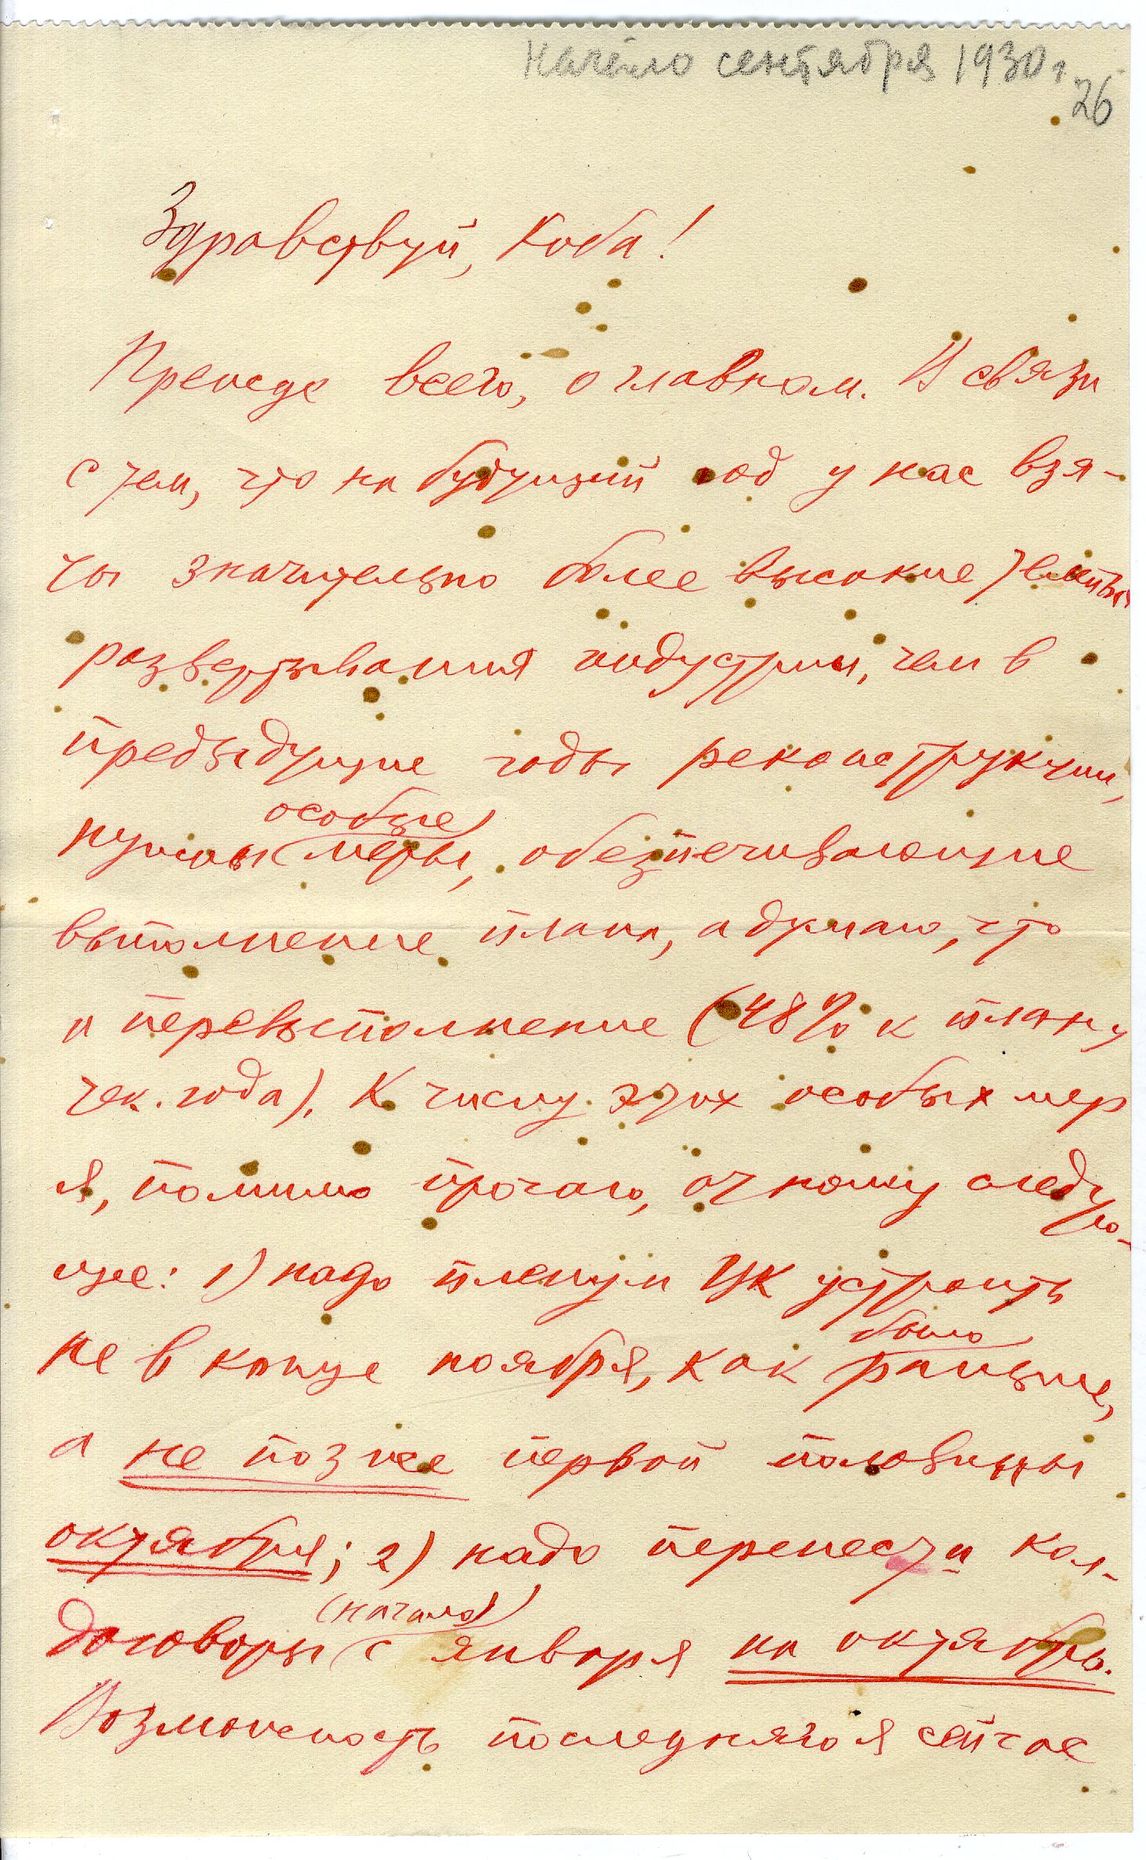 Начало сентября 1930 г.
26
Здравствуй, Коба!
Прежде всего, о главном. В связи
с тем, что на будущий год у нас взя-
ты значительно более высокие темпы
развертывания индустрии, чем в
предыдущие годы реконструкции,
особые
нужны меры, обезпечивающие
выполнение плана, а думаю, что
и перевыполнение (48% к плану
тек. года). К числу этих особых мер
я, помимо прочаго, отношу следую-
щее: 1) надо пленум ЦК устроить
было
не в конце ноября, как раньше,
а не позже первой половины
октября; 2) надо перенести кол-
(начало)
договоры с января на октябрь.
Возможность последняго я сейчас